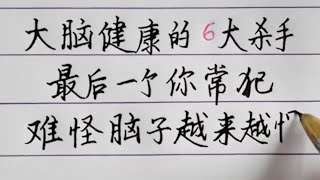 大脑健康的6大杀手
最后一个你常犯
难怪脑子越来越